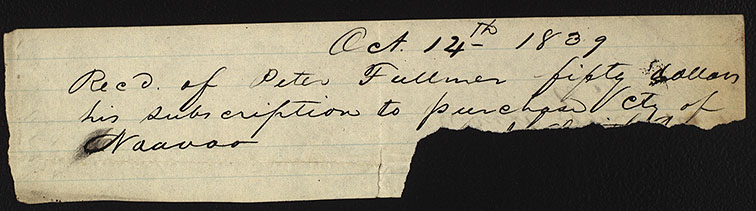 Oct. 14th 1839
Recd. of Peter Fullmer fifty dollars
his subscription to purchase Cty of
Naavoo